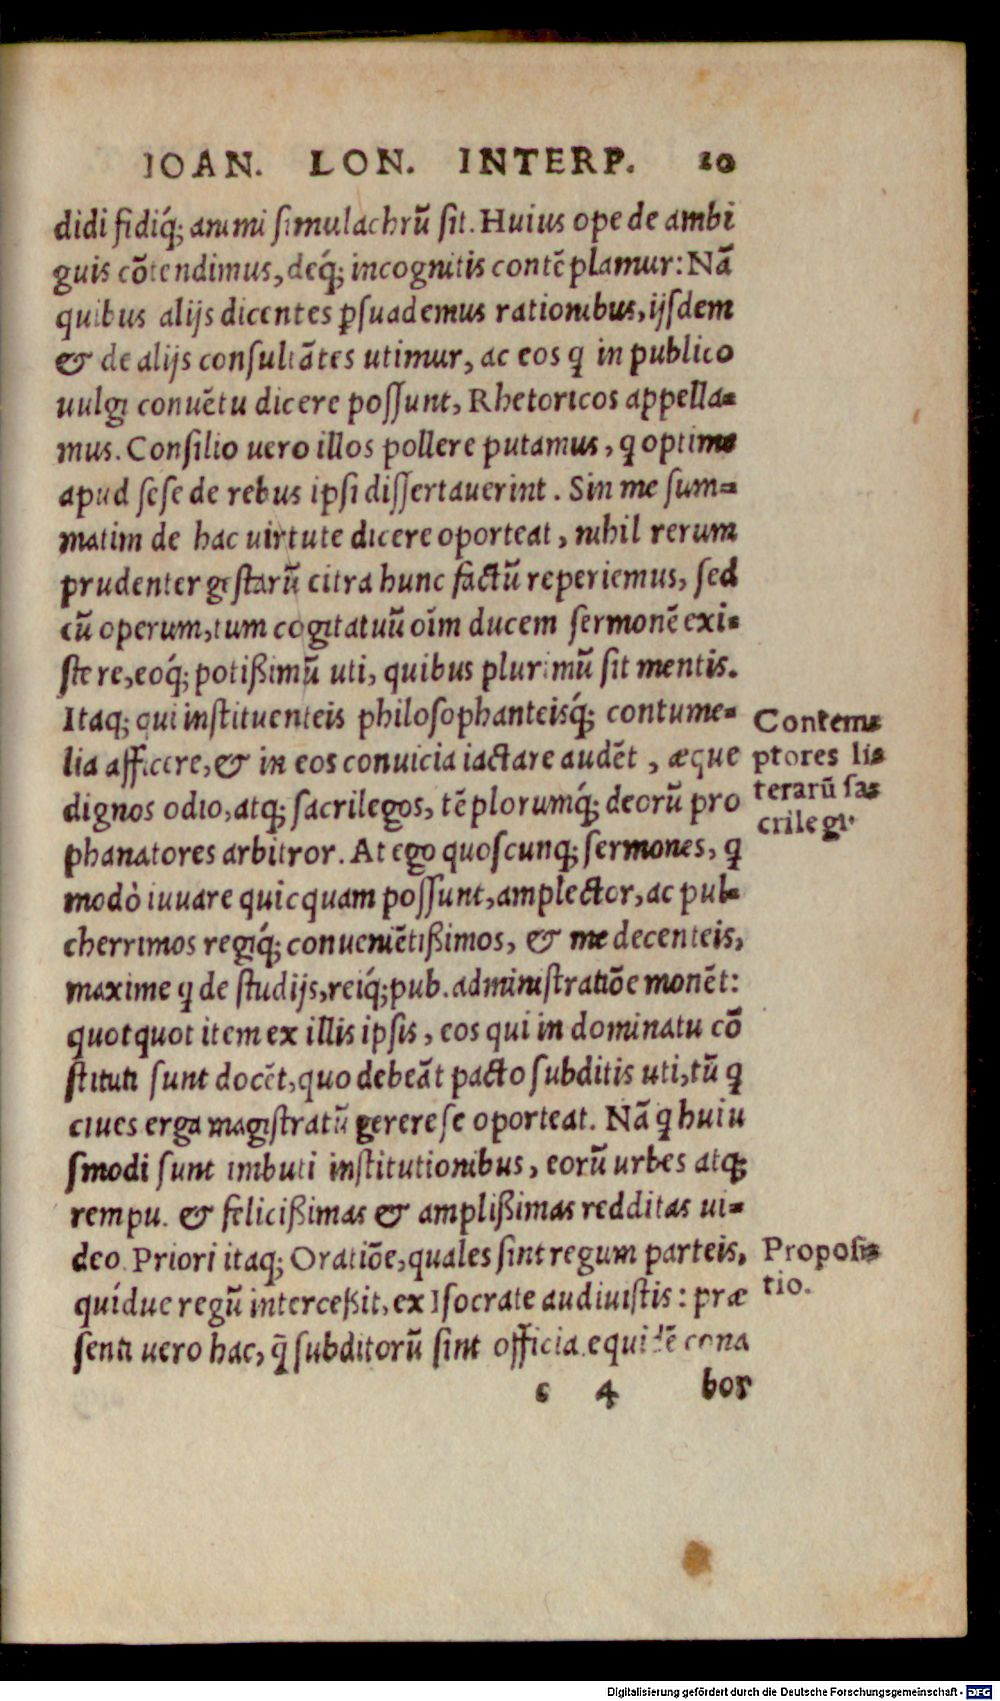 IOAN. LON. INTERP. 20
didi fidiq́; animi simulachrū sit. Huius ope de ambi
guis cōtendimus, deq́; incognitis contēplamur: Nā
quibus alijs dicentes ꝑsuademus rationibus, ijsdem
& de alijs consultātes utimur, ac eos q in publico
uulgi conuētu dicere possunt, Rhetoricos appella=
mus. Consilio uero illos pollere putamus, q optime
apud sese de rebus ipsi dissertauerint. Sin me sum=
matim de hac uirtute dicere oporteat, nihil rerum
prudenter gestarū citra hunc factū reperiemus, sed
cū operum, tum cogitatuū oīm ducem sermonē exi=
stere, eoq́; potißimū uti, quibus plurimū sit mentis.
Itaq; qui instituenteis philosophanteisq́; contume=
lia afficere, & in eos conuicia iactare audēt, æque
dignos odio, atq; sacrilegos, tēplorumq́; deorū pro
phanatores arbitror. At ego quoscunq; sermones, q
modò iuuare quicquam possunt, amplector, ac pul=
cherrimos regiq́; conueniētißimos, & me decenteis,
maxime q de studijs, reiq́; pub. administratiōe monēt:
quotquot item ex illis ipsis, eos qui in dominatu cō
stituti sunt docēt, quo debeāt pacto subditis uti, tū q
ciues erga magistratū gerere se oporteat. Nā q huiu
smodi sunt imbuti institutionibus, eorū urbes atq;
rempu. & felicißimas & amplißimas redditas ui=
deo. Priori itaq; Oratiōe, quales sint regum parteis,
quidue regū interceßit, ex Isocrate audiuistis: præ
senti uero hac, q̄ subditorū sint officia. equidē cona
c 4 bor
Contem=
ptores li=
terarū sa=
crilegi.
Proposi=
tio.
Digitalisierung gefördert durch die Deutsche Forschungsgemeinschaft - DFG